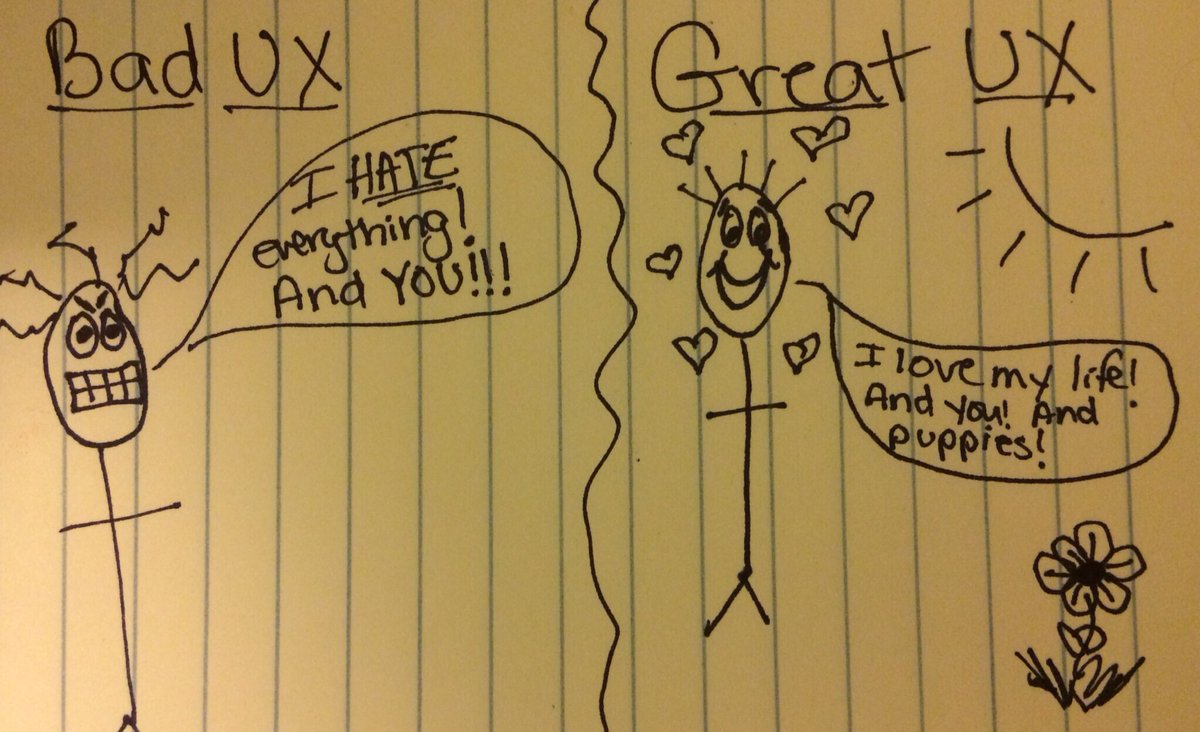 Bad UX
I HATE
everything!
And YOU!!!
Great UX
I love my life!
And you! And
puppies!